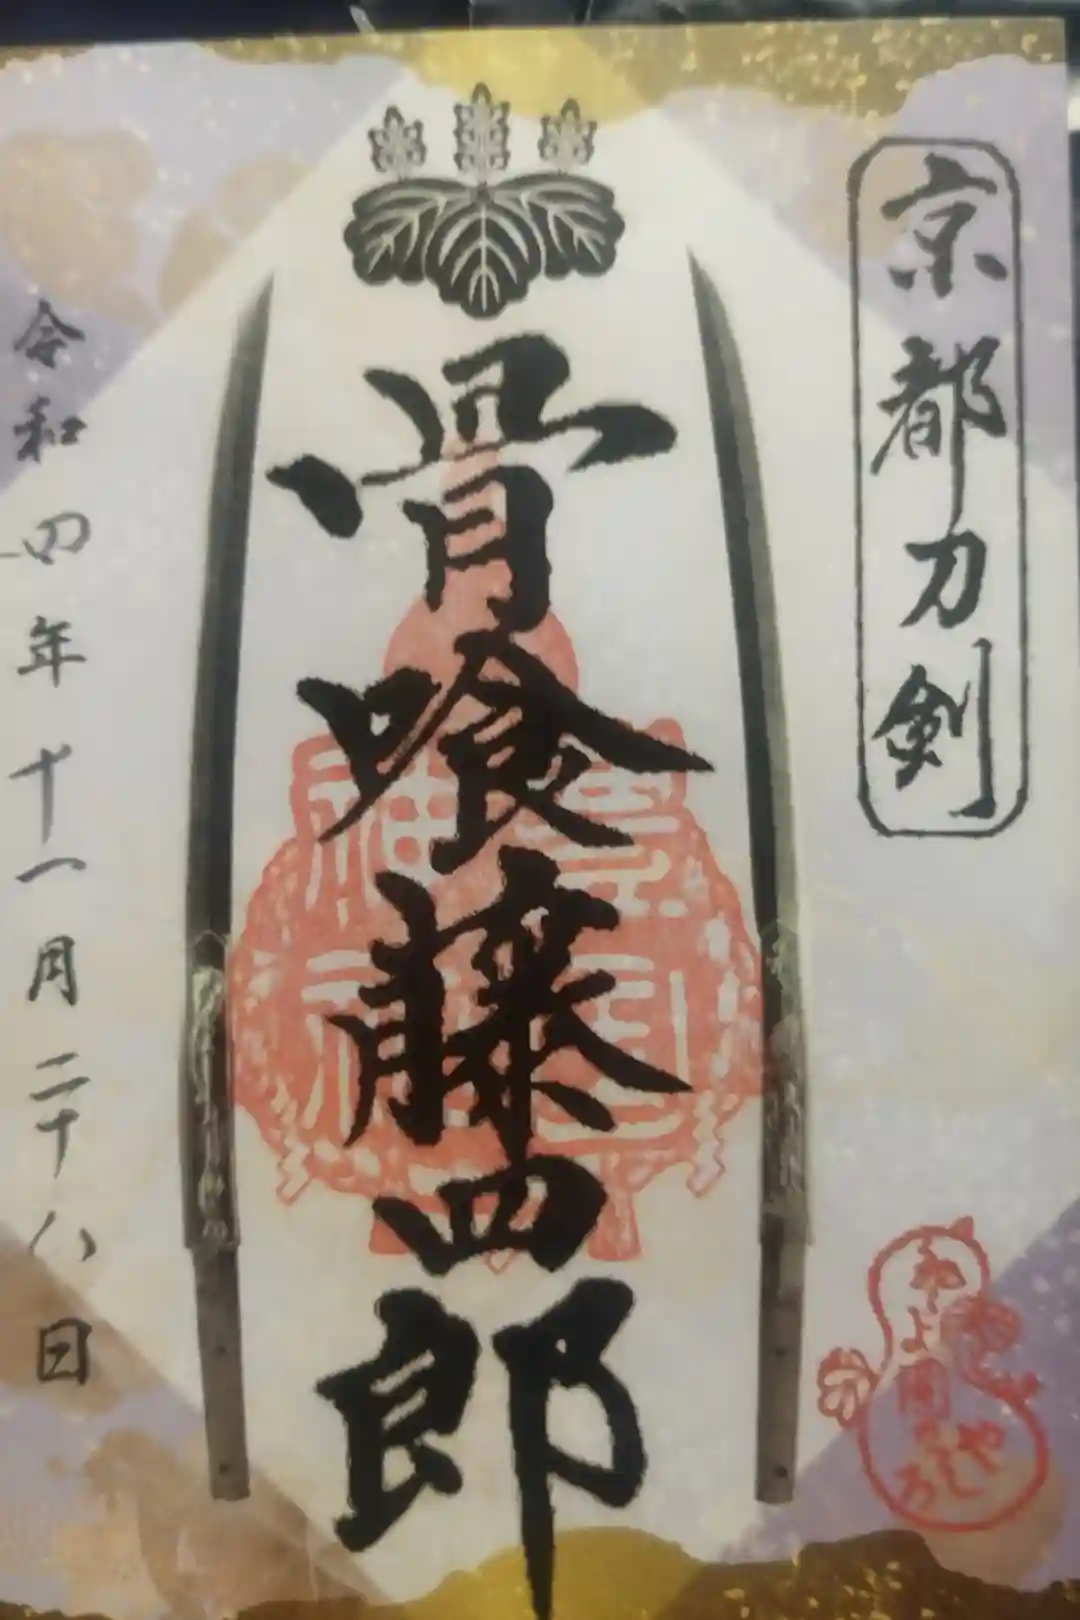 京都刀剣
骨喰藤四郎
令和四年十一月二十八日
豊国
神社